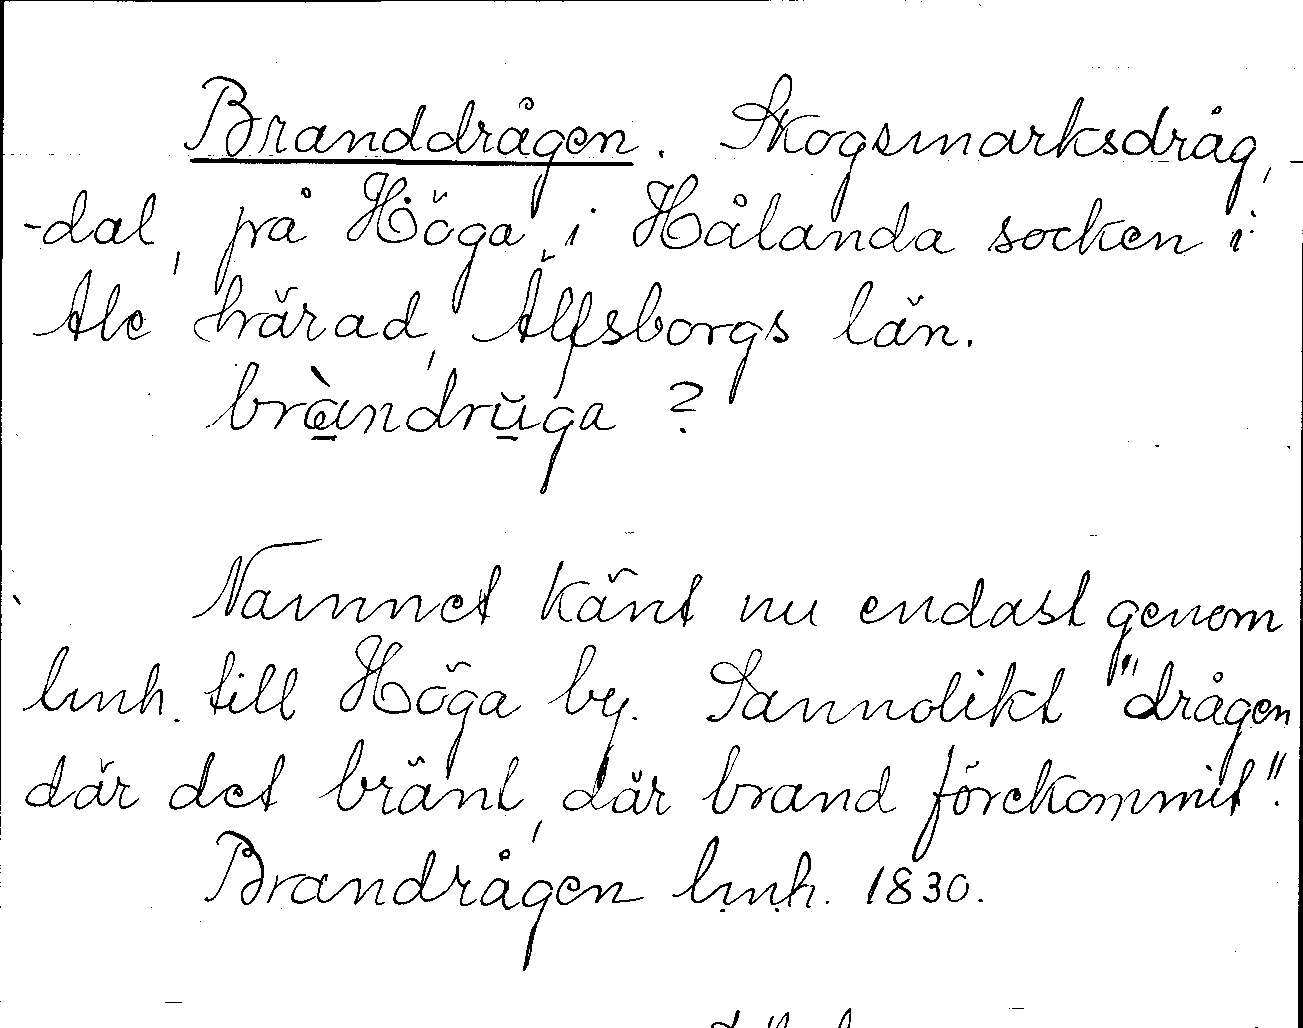 Branddrågen. Skogsmarksdråg,
-dal, på Höga i Hålanda socken i
Ale härad, Älfsborgs län.
bràndrŭga ?
Namnet känt nu endast genom
lmh. till Höga by. Sannolikt "drågen
där det bränt, där brand förekommit".
Brandrågen lmh. 1830.